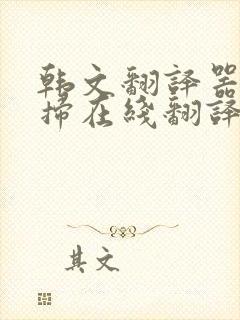 韩文翻译器
掃在綫翻譯
其文